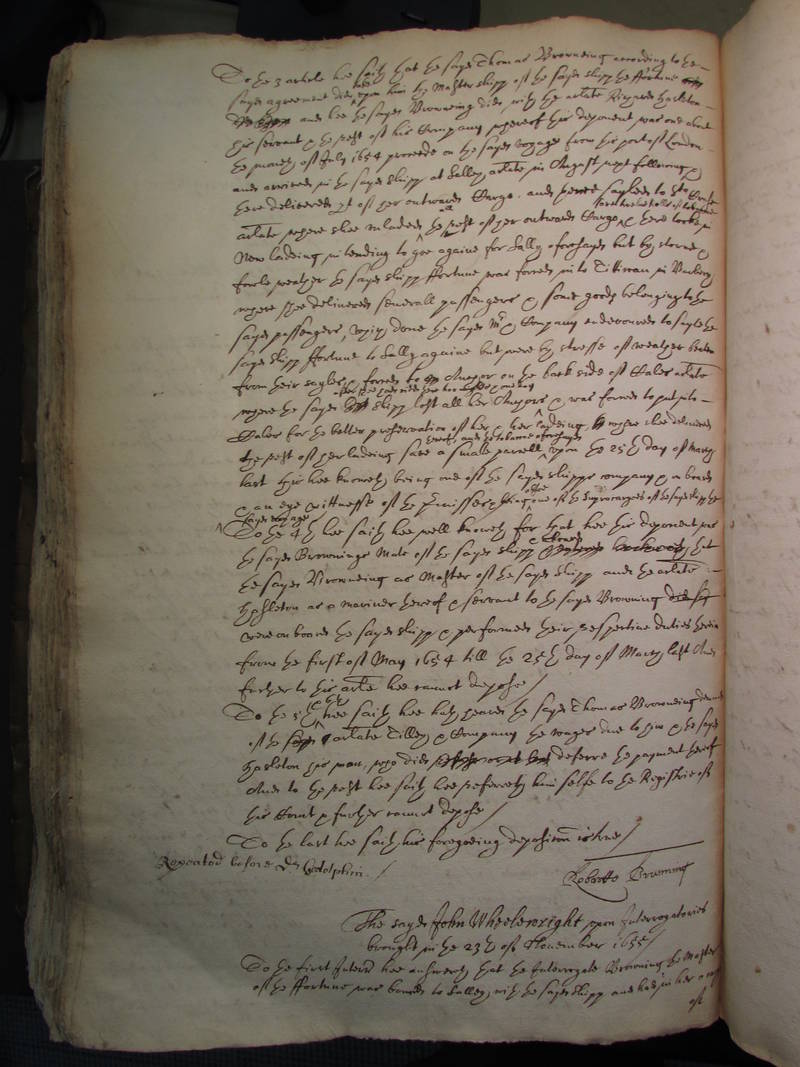 To the 3 article hee saith that the sayd Thomas Browneing according to the
sayd agreement did take upon him the Master shipp of the sayd shipp the ffortune
and hee the sayd Browneing did, with the arlate Richard Hasleton
his servant & the rest of his Company whereof this deponent was one about
the moneth of July 1654 proceede on the sayd voyage from this port of London
and arrived in the sayd shipp at Salley arlate in August next following &
there delivered pt of her outwards Cargo. and sayled to Sta Cruse
arlate where shee unladed the rest of her outwards Cargo, & there tooke in
New ladeing intending to goe againe for Sally aforesayd but by storme &
foule weather the sayd shipp ffortune was forced into Tittuan in Barbary
where shee delivered severall passengers & some goods belonging to the
sayd passengers, which done the sayd Mr & Company endevoured to sayle the
sayd shipp ffortune to Sally againe but were by stresse of weather beaten
from theire sayles & forced to Anchor on the back side of Cales arlate
where the sayd shipp lost all her Anchors & was forced to put into
Cales for the better preservation of her & her ladeing, where shee delivered
the rest of her ladeing save a small parcell upon the 25th day of March
last this hee knoweth being one of the sayd shipps company & on board
& an eye wittnesse of the premisses & being one of the of the sayd shipp the
sayd voyage
To the 4th hee saith hee well knoweth for that hee this deponent was
the sayd Brownings Mate of the sayd shipp that
the sayd Browneing as Master of the sayd shipp and the arlate
Hasleton as a mariner thereof & servant to the sayd Browning
were on board the sayd shipp & performed their respective duties therein
from the first of May 1654 till the 25th day of March last And
further to this arlte hee cannot depose /
To the 5th hee saith hee hath heard the sayd Thomas Browneing demand
of the arlate Tilley & Company the wages due to him & the sayd
Hasleton his man, who did deferre the payment thereof
And to the rest hee saith hee referreth him selfe to the Registrie of
this Court & further cannot depose /
To the last hee saith his foregoeing deposition is true /
Repeated before Dr Godolphin. /
The sayd John Wheelewright upon Interrogatories
brought in the 23th of November 1655 /
To the first Interr hee answereth that the Interrogate Browning the Master
of the ffortune was bound to Salley, with the sayd shipp and had in her
of